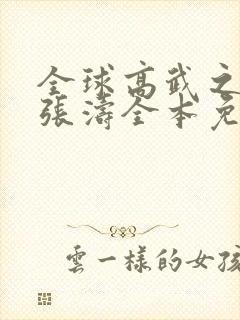 全球高武之
張濤全本免
雲一樣的女孩